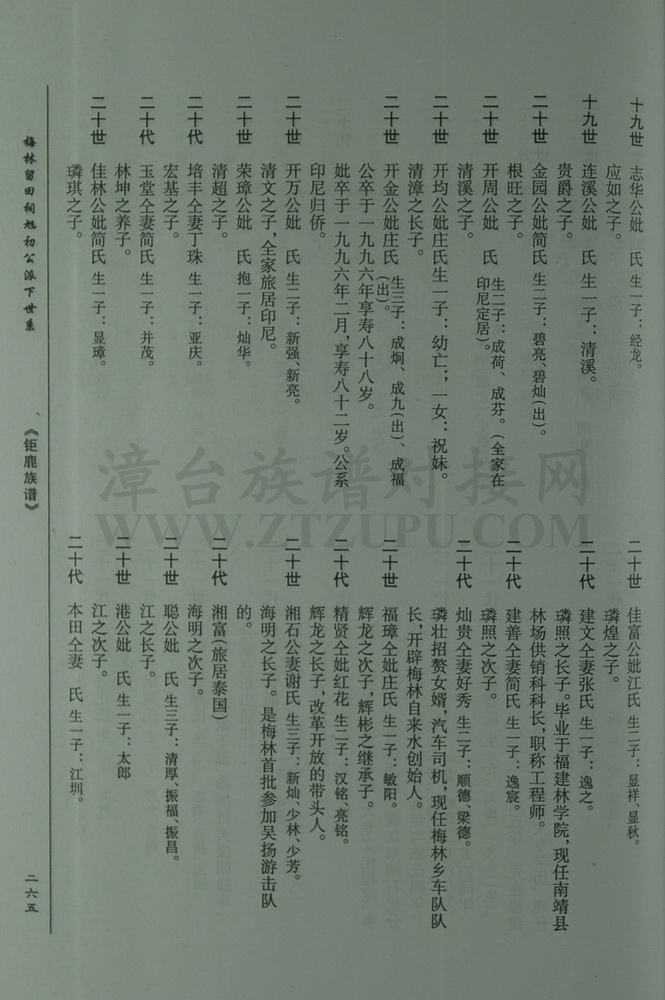 十九世 志华公妣 氏 生一子：经龙。
应如之子。
十九世 连溪公妣 氏 生一子：清溪。
贵爵之子。
二十世 金园公妣简氏 生二子：碧亮、碧灿(出)。
根旺之子。
二十世 开周公妣 氏 生二子：成荷、成芬。(全家在
印尼定居)。
清溪之子。
二十世 开均公妣庄氏生一子：幼亡；一女：祝妹。
清漳之长子。
二十世 开金公妣庄氏 生三子：成炯、成九(出)、成福
(出)。
公卒于一九九六年享寿八十八岁。
妣卒于一九九六年二月，享寿八十二岁。公系
印尼归侨。
二十世 开万公妣 氏 生二子：新强、新亮。
清文之子，全家旅居印尼。
二十世 荣璋公妣 氏 抱一子：灿华。
清超之子。
二十代 培丰仝妻丁珠 生一子：亚庆。
宏基之子。
二十代 玉堂仝妻简氏 生一子：并茂。
林坤之养子。
二十世 佳林公妣简氏 生一子：显璋。
璘琪之子。
二十世 佳富公妣江氏 生二子：显祥、显秋。
璘煌之子。
二十代 建文仝妻张氏 生一子：逸之。
璘照之长子。毕业于福建林学院，现任南靖县
林场供销科科长，职称工程师。
二十代 建善仝妻简氏 生一子：逸宸。
璘照之次子。
二十代 灿贵仝妻好秀 生二子：顺德、梁德。
璘壮招赘女婿，汽车司机，现任梅林乡车队队
长、开辟梅林自来水创始人。
二十世 福璋仝妣庄氏 生一子：敏阳。
辉龙之次子，辉彬之继承子。
二十代 精贤仝妣红花 生二子：汉铭、亮铭。
辉龙之长子，改革开放的带头人。
二十世 湘石公妻谢氏 生三子：新灿、少林、少芳。
海明之长子。是梅林首批参加吴扬游击队
的。
二十代 湘富(旅居泰国)
海明之次子。
二十世 聪公妣 氏 生三子：清厚、振福、振昌。
江之长子。
二十世 港公妣 氏 生一子：太郎
江之次子。
二十代 本田仝妻 氏 生一子：江圳。
梅林留田祠旭初公派下世系
《钜鹿族谱》
二六五
漳台族谱对接网
WWW.ZTZUPU.COM